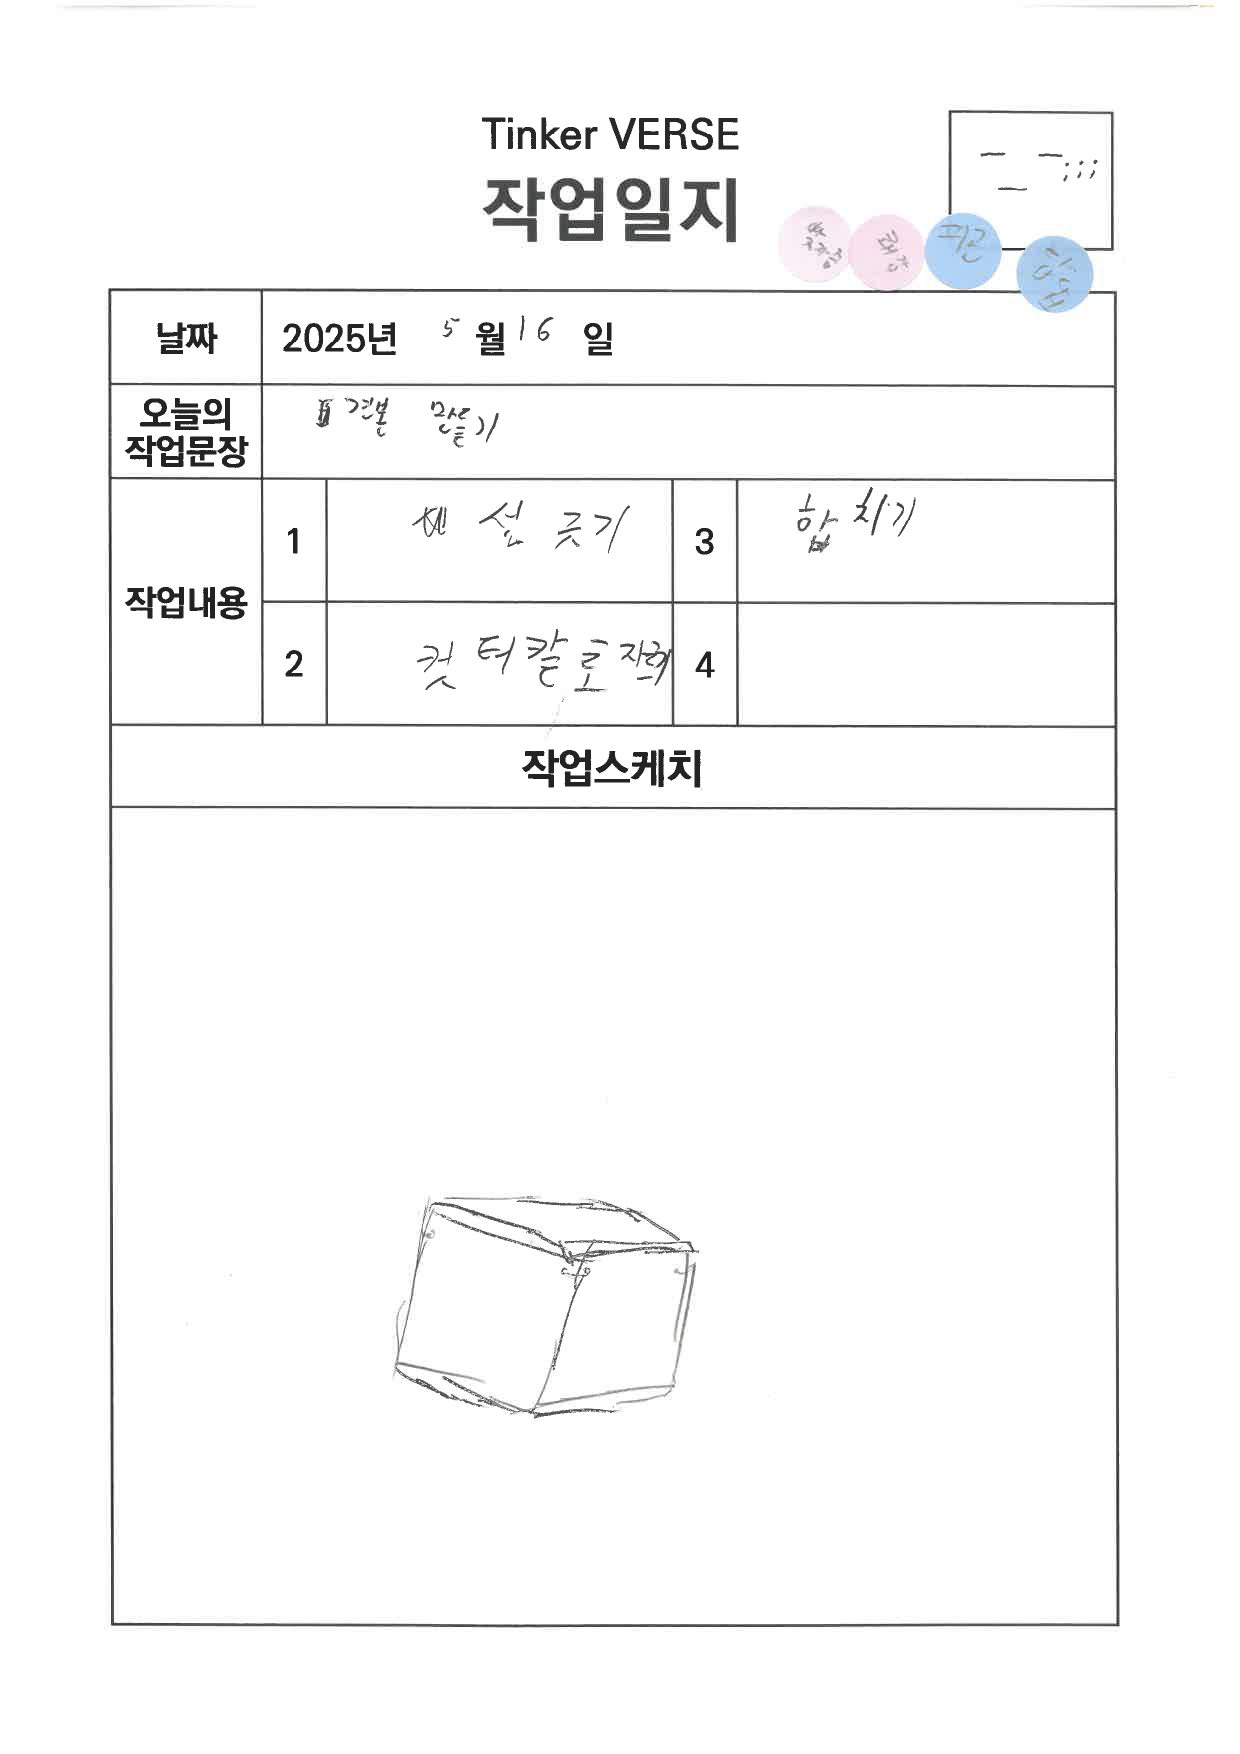 Tinker VERSE
작업일지
피곤
날짜
2025년 5월 16일
오늘의
작업문장
만들기
작업내용
1
선 긋기
3
합치기
2
컷터칼로 자르기
4
작업스케치